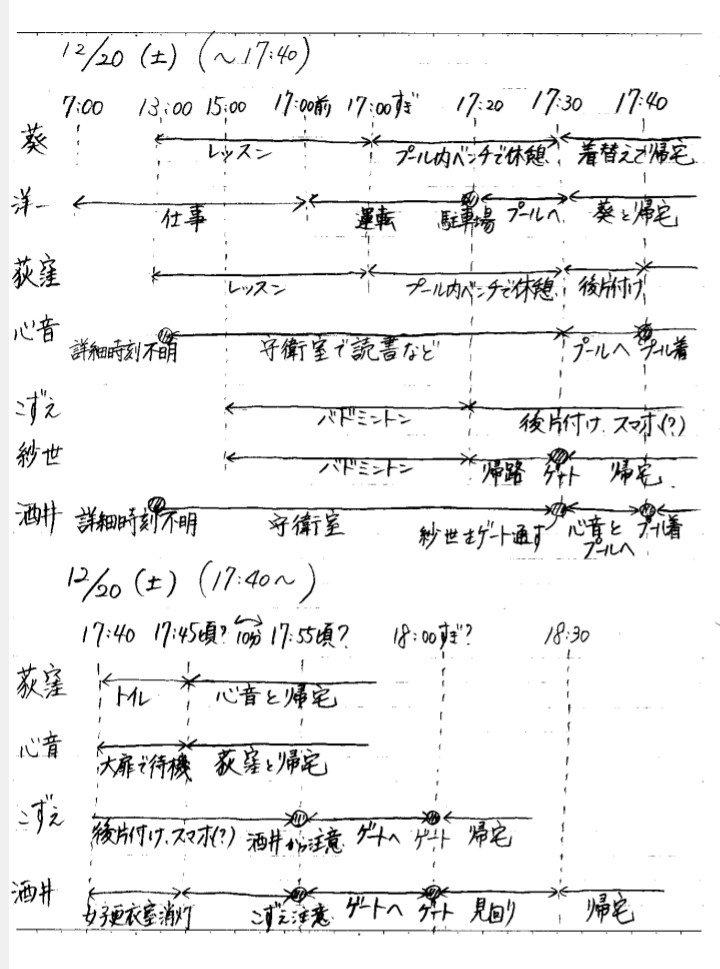 12/20 (土) (～17:40)
7:00 13:00 15:00 17:00前 17:00すぎ 17:20 17:30 17:40
葵 レッスン プール内ベンチで休憩 着替えて帰宅
洋一 仕事 運転 駐車場 プールへ 葵と帰宅
荻窪 レッスン プール内ベンチで休憩 後片付け
心音 詳細時刻不明 守衛室で読書など プールへ プール着
こずえ バドミントン 後片付け、スマホ(?)
紗世 バドミントン 帰路 ゲート 帰宅
酒井 詳細時刻不明 守衛室 紗世をゲート通す 心音とプールへ プール着
12/20 (土) (17:40～)
17:40 17:45頃? 10分 17:55頃? 18:00すぎ? 18:30
荻窪 トイレ 心音と帰宅
心音 大扉で待機 荻窪と帰宅
こずえ 後片付け、スマホ(?) 酒井から注意 ゲートへ ゲート 帰宅
酒井 女子更衣室消灯 こずえ注意 ゲートへ ゲート 見回り 帰宅